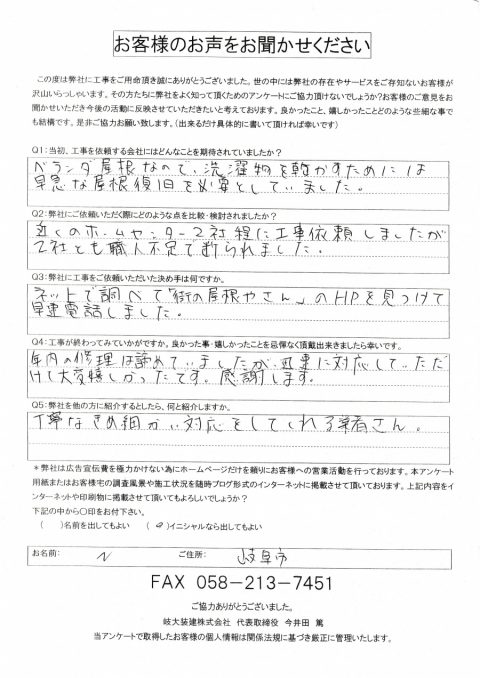 お客様のお声をお聞かせください
この度は弊社に工事をご用命頂き誠にありがとうございました。世の中には弊社の存在やサービスをご存知ないお客様が
沢山いらっしゃいます。その方たちに弊社をよく知って頂くためのアンケートにご協力頂けないでしょうか?お客様のご意見をお
聞かせいただき今後の活動に反映させていただきたいと考えております。良かったこと、嬉しかったことどのような些細な事で
も結構です。是非ご協力お願い致します。（出来るだけ具体的に書いて頂ければ幸いです）
Q1：当初、工事を依頼する会社にはどんなことを期待されていましたか?
ベランダ屋根なので、洗濯物を乾かすためには
早急な屋根復旧を必要としていました。
Q2：弊社にご依頼いただく際にどのような点を比較・検討されましたか?
近くのホームセンター2社程に工事依頼しましたが
2社とも職人不足で断られました。
Q3：弊社に工事をご依頼いただいた決め手は何ですか。
ネットで調べて「街の屋根やさん」のHPを見つけて
早速電話しました。
Q4：工事が終わってみていかがですか。良かった事・嬉しかったことを忌憚なく頂戴出来きましたら幸いです。
年内の修理は諦めていましたが、迅速に対応していただ
けて大変嬉しかったです。感謝します。
Q5：弊社を他の方に紹介するとしたら、何と紹介しますか。
丁寧なきめ細かい対応をしてくれる業者さん。
＊弊社は広告宣伝費を極力かけない為にホームページだけを頼りにお客様への営業活動を行っております。本アンケート
用紙またはお客様宅の調査風景や施工状況を随時ブログ形式のインターネットに掲載させて頂いております。上記内容をイ
ンターネットや印刷物に掲載させて頂いてもよろしいでしょうか?
下記の中から〇印をお付下さい。
（　）名前を出してもよい　（○）イニシャルなら出してもよい
お名前：　N　ご住所：　岐阜市
FAX 058－213－7451
ご協力ありがとうございました。
岐大装建株式会社　代表取締役　今井田　篤
当アンケートで取得したお客様の個人情報は関係法規に基づき厳正に管理いたします。